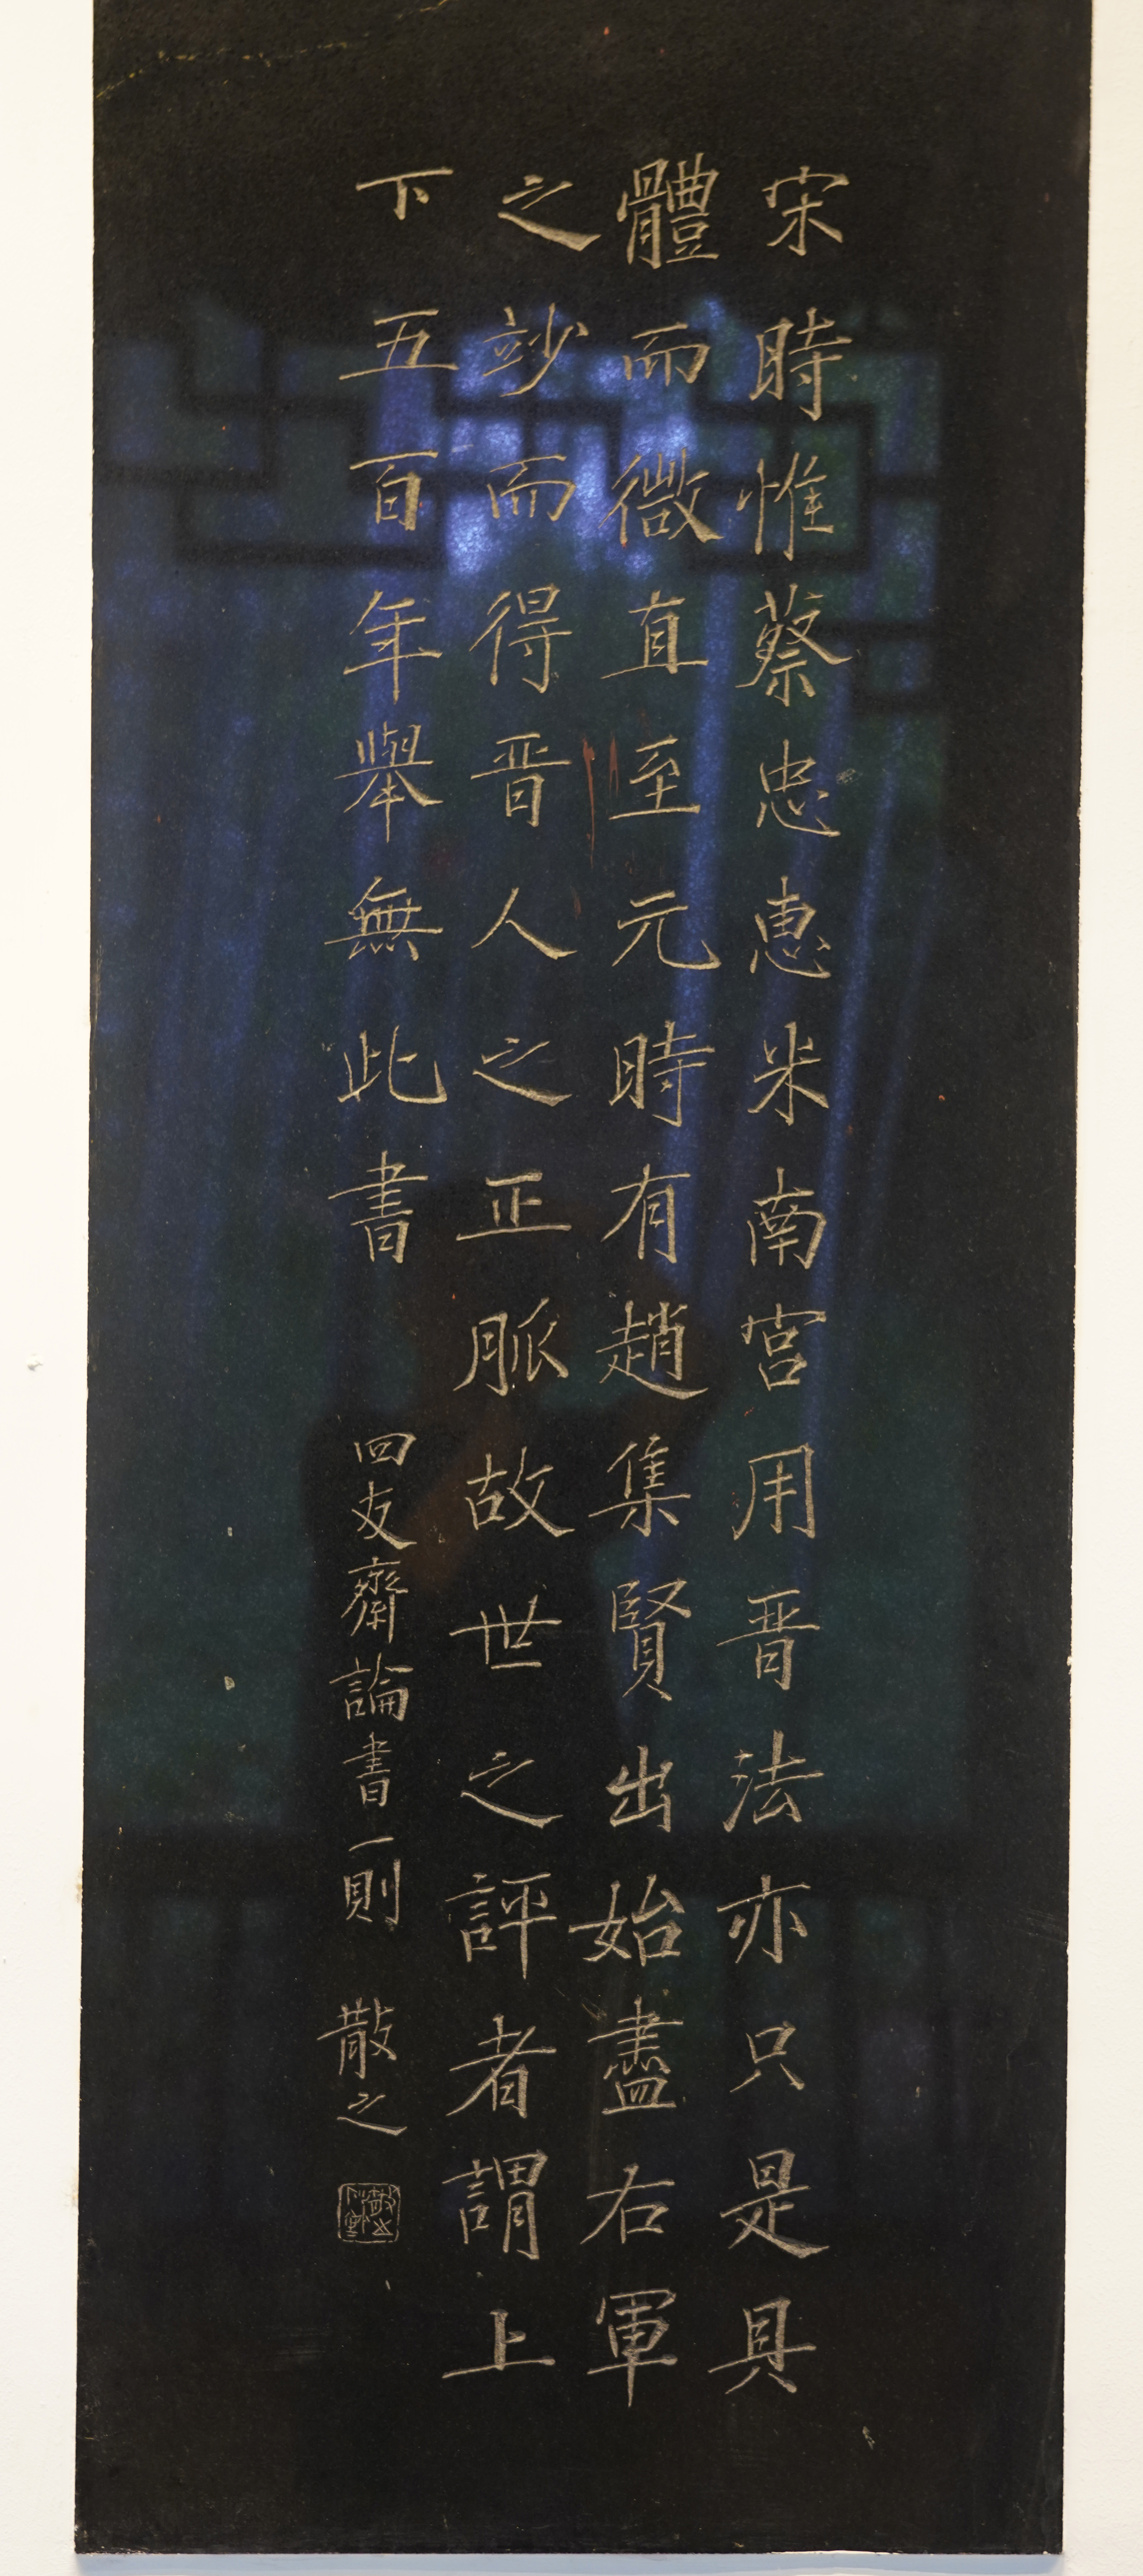 宋時惟蔡忠惠米南宮用晋法亦只是具
體而微直至元時有趙集賢出始盡右軍
之竗而得晋人之正脈故世之評者謂上
下五百年舉無此書
四友齋論書一則 散之